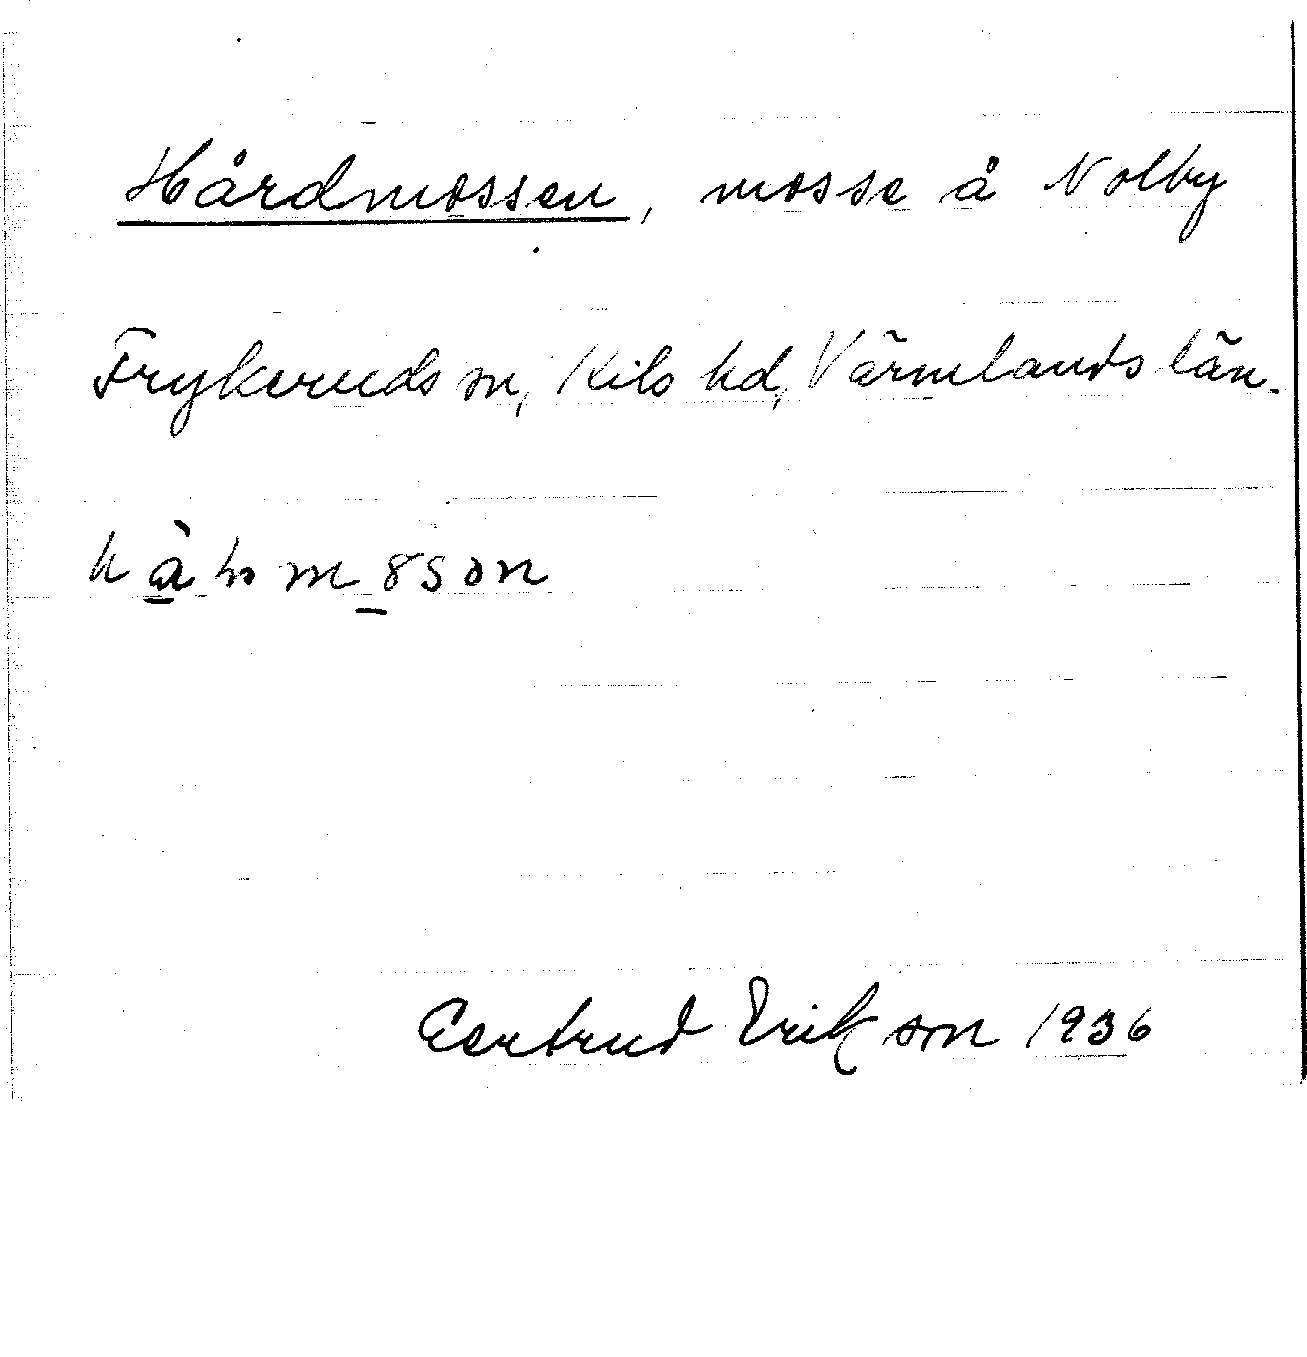 Hårdmossen, mosse å Nolby
Frykeruds sn, Kils hd, Värmlands län.
Gertrud Erikson 1936